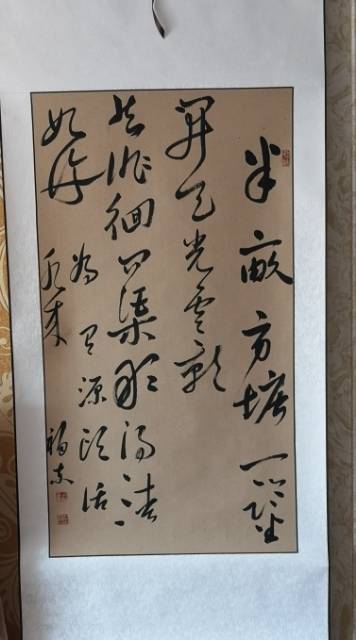 半畝方塘一鑒
開天光雲影
共徘徊問渠那得清
如許
為有源頭活
水來